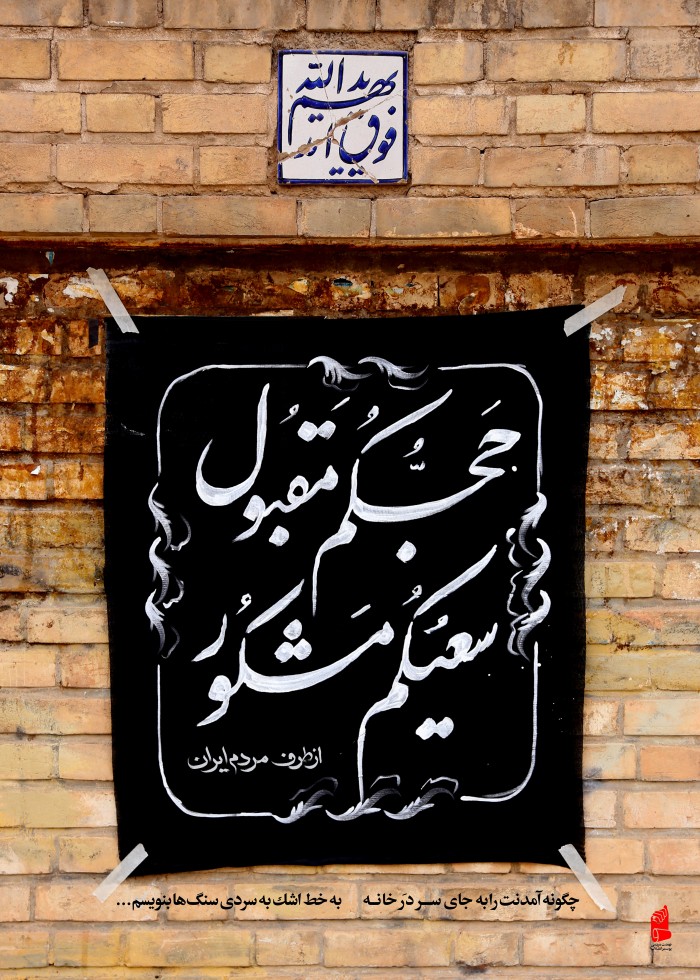 ید الله
فوق ایدیهم
حَجُّکُم مَقبُول
سَعیُکُم مَشکُور
از طرف مردم ایران
چگونه آمدنت را به جای ســر درَ خانـه به خط اشك به سردی سنگ‌ها بنویسم...